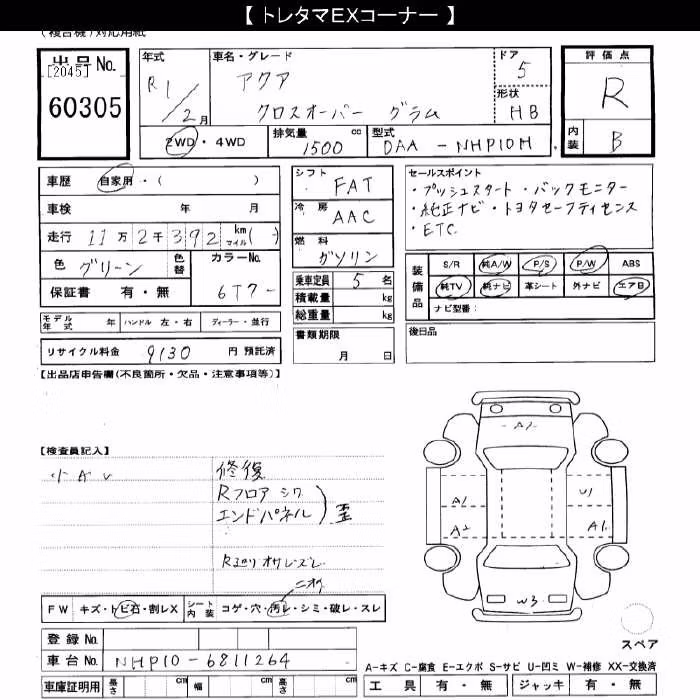 【 トレタマEXコーナー 】
(複合機)対応用紙
出品No.
[2045]
60305
年式
R1/2月
車名・グレード
アクア
クロスオーバー グラム
ドア
5
形状
HB
評価点
R
内装
B
2WD・4WD
排気量 1500 cc
型式 DAA-NHP10H
車歴 自家用・( )
車検 年 月
走行 11万2千392 km マイル( )
色 グリーン
色替
カラーNo.
6T7-
保証書 有・無
モデル年式 年 ハンドル 左・右 ディーラー・並行
リサイクル料金 9130 円 預託済
シフト
FAT
冷房
AAC
燃料
ガソリン
乗車定員 5 名
積載量 kg
総重量 kg
書類期限
月 日
セールスポイント
・プッシュスタート・バックモニター
・純正ナビ・トヨタセーフティセンス
・ETC
装備品
S/R 純A/W P/S P/W ABS
純TV 純ナビ 革シート 外ナビ エアB
ナビ型番:
後日品
【出品店申告欄(不良箇所・欠品・注意事項等)】
【検査員記入】
小AU
修復
Rフロア シワ
エンドパネル
歪
Rユリ オサレズレ
ニオイ
FW キズ・トビ石・割レX
シート内装 コゲ・穴・汚レ・シミ・破レ・スレ
登録No.
車台No. NHP10-6811264
車庫証明用 長さ cm 幅 cm 高さ cm
A1
A1
A2
U1
A1
W3
スペア
A-キズ C-腐食 E-エクボ S-サビ U-凹ミ W-補修 XX-交換済
工具 有・無 ジャッキ 有・無